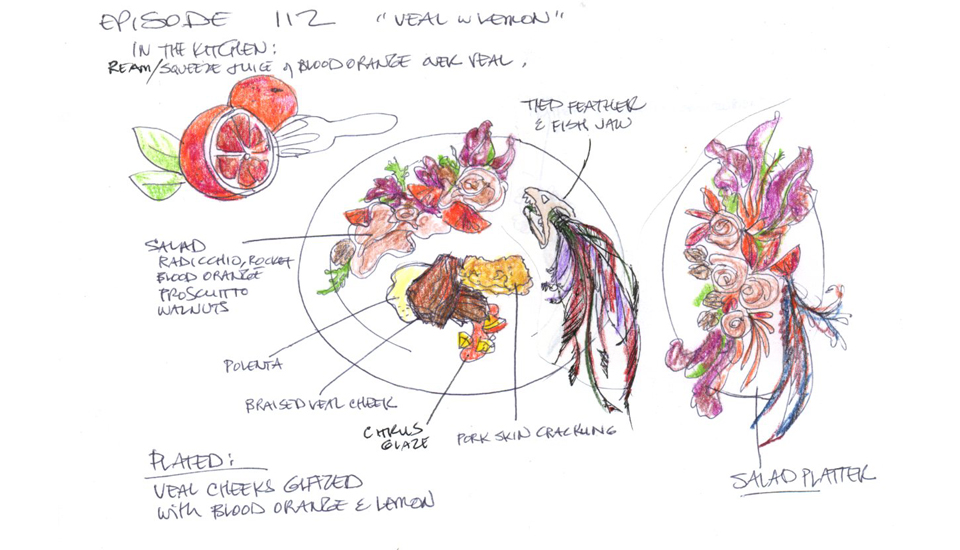 EPISODE 112 "VEAL w LEMON"
IN THE KITCHEN:
REAM/SQUEEZE JUICE of BLOOD ORANGE OVER VEAL.
TIED FEATHER
& FISH JAW
SALAD
RADICCHIO, ROCKET
BLOOD ORANGE
PROSCUITTO
WALNUTS
POLENTA
BRAISED VEAL CHEEK
CITRUS
GLAZE
PORK SKIN CRACKLING
PLATED:
VEAL CHEEKS GLAZED
with BLOOD ORANGE & LEMON
SALAD PLATTER